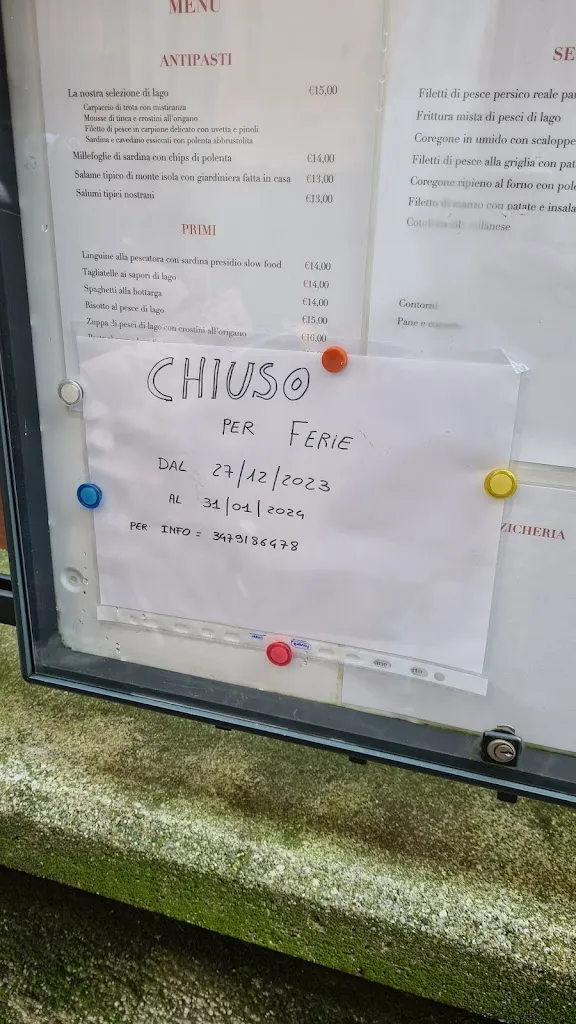 MENU
ANTIPASTI
La nostra selezione di lago €15,00
Carpaccio di trota con misticanza
Mousse di tinca e crostini all'origano
Filetto di pesce in carpione delicato con uvetta e pinoli
Sardina e cavedano essicati con polenta abbrustolita
Millefoglie di sardina con chips di polenta €14,00
Salame tipico di monte isola con giardiniera fatta in casa €13,00
Salumi tipici nostrani €13,00
PRIMI
Linguine alla pescatora con sardina presidio slow food €14,00
Tagliatelle ai sapori di lago €14,00
Spaghetti alla bottarga €14,00
Risotto al pesce di lago €15,00
Zuppa di pesci di lago con crostini all'origano €16,00
SE
Filetti di pesce persico reale
Frittura mista di pesci di lago
Coregone in umido con scaloppe
Filetti di pesce alla griglia con pat
Coregone ripieno al forno con pole
Filetto di manzo con patate e insala
Contorni
Pane e
CHIUSO
PER FERIE
DAL 27/12/2023
AL 31/01/2024
PER INFO = 3479186478
ZICHERIA